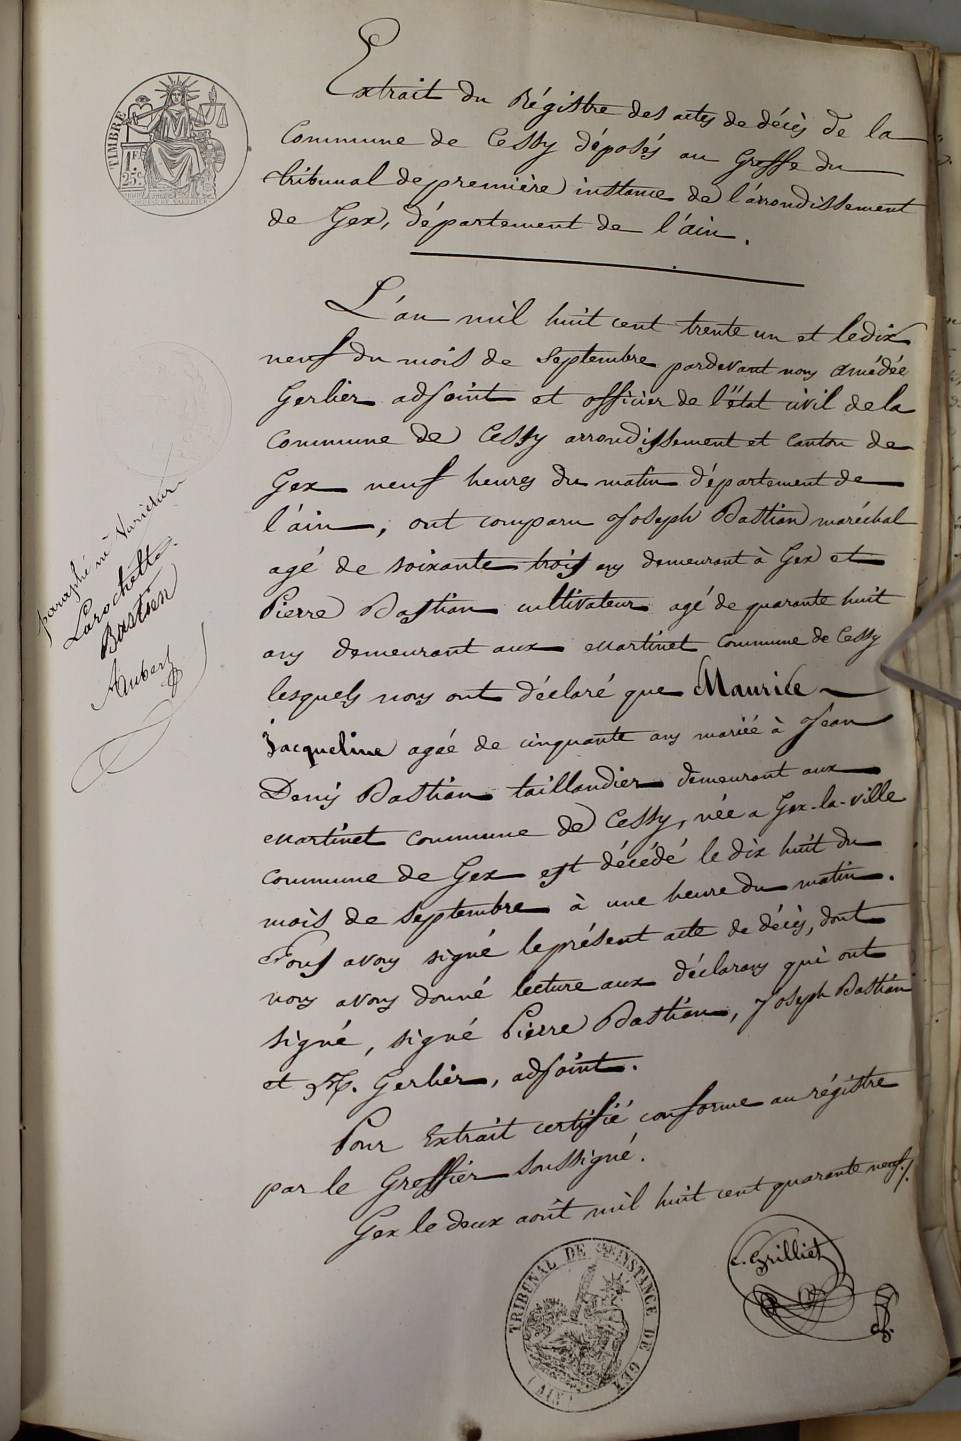 Extrait du Régistre des actes de décès de la
Commune de Cessy déposés au Greffe du
tribunal de première instance de l'arrondissement
de Gex, département de l'ain.
TIMBRE
1F
25c
L'an mil huit cent trente un et le dix
neuf du mois de Septembre pardevant nous Amédée
Gerlier adjoint et officier de l'état civil de la
Commune de Cessy arrondissement et canton de
Gex neuf heures du matin département de
l'ain, ont comparu Joseph Bastian maréchal
agé de soixante trois ans demeurant à Gex et
Pierre Bastian cultivateur agé de quarante huit
ans demeurant aux Martinet Commune de Cessy
lesquels nous ont déclaré que Maurice
Jacqueline agée de cinquante ans mariée à Jean
Denis Bastian taillandier demeurant aux
Martinet commune de Cessy, née a Gex-la-ville
commune de Gex est décédé le dix huit du
mois de septembre à une heure du matin.
Nous avons signé le présent acte de décès, dont
nous avons donné lecture aux déclarans qui ont
signé, signé Pierre Bastian, Joseph Bastian
et M. Gerlier, adjoint.
Pour Extrait certifié conforme au régistre
par le Greffier soussigné.
Gex le deux août mil huit cent quarante neuf.
paraphé
Larochette
Bastien
Aubert
C. Grilliet
TRIBUNAL DE 1ERE INSTANCE DE GEX
(AIN)